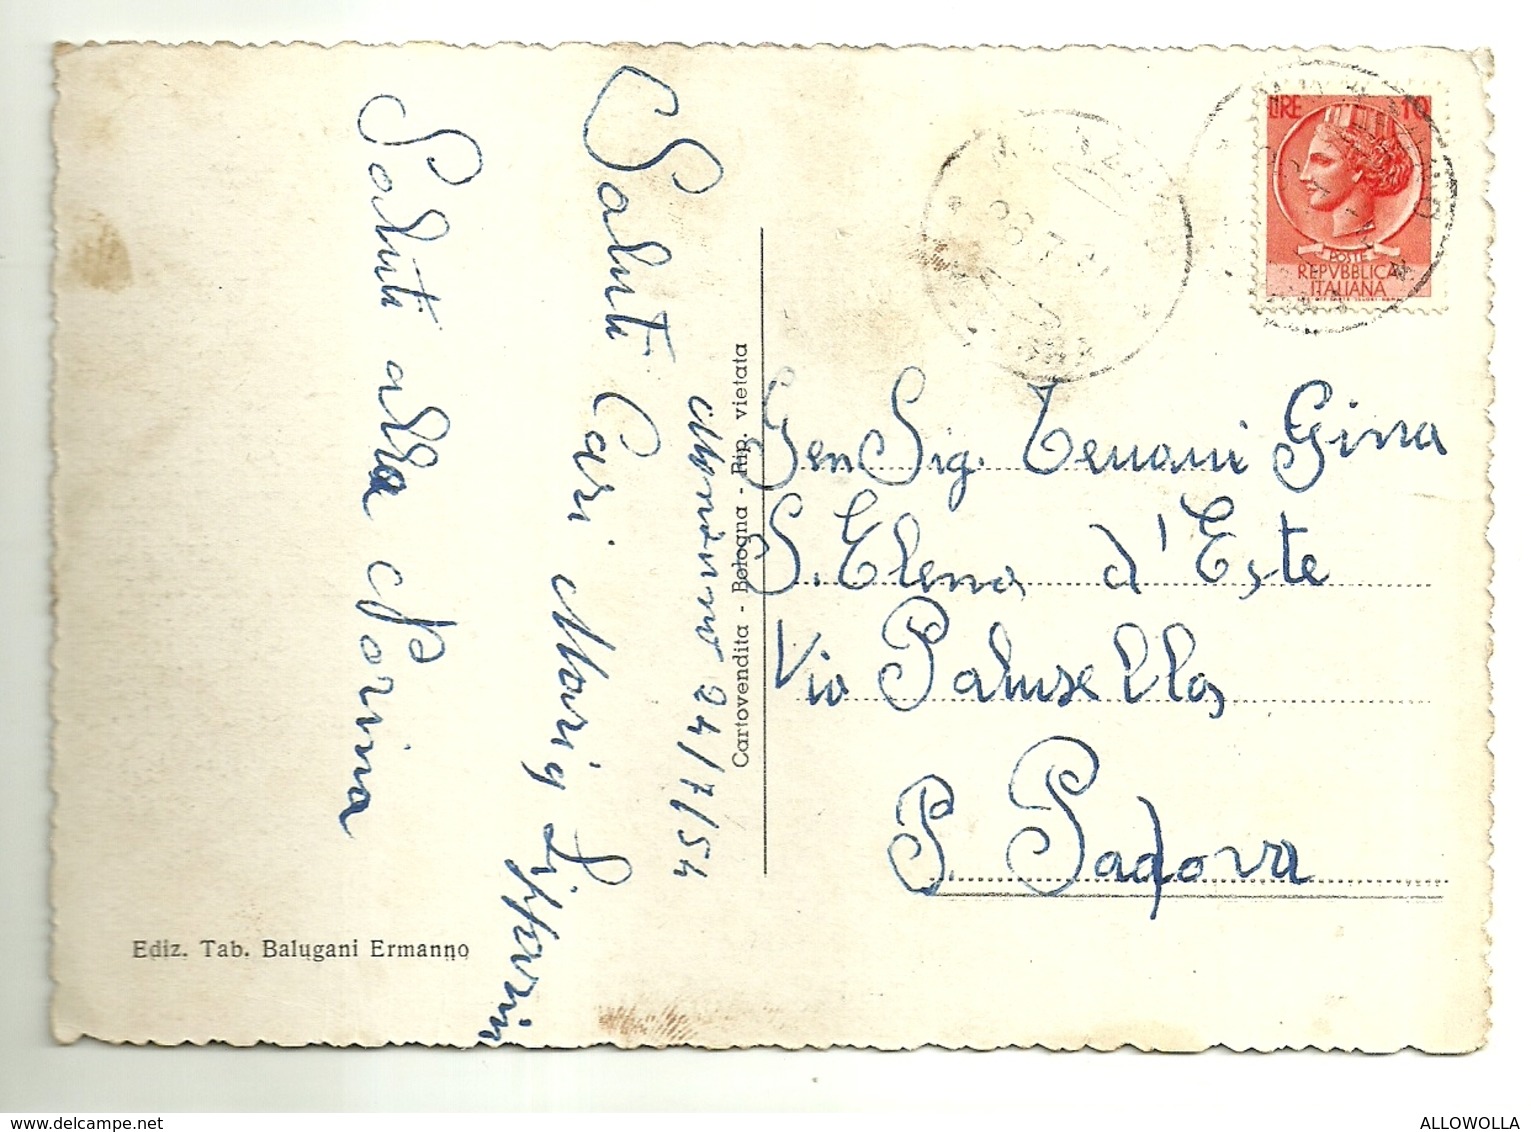 Saluti alla Norina
Saluti Cari Maria Lipparini
24/7/54
Ediz. Tab. Balugani Ermanno
Cartovendita - Bologna - Rip. vietata
LIRE 10
POSTE
REPVBBLICA
ITALIANA
Gen Sig. Gina
S. Elena d'Este
Via Palusella,
P. Padova
ALLOWOLLA